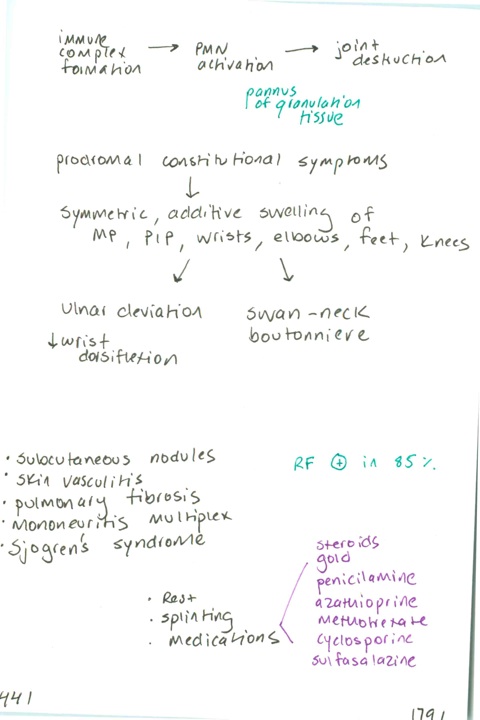 immune
complex
formation → PMN
activation → joint
destruction
pannus
of granulation
tissue
prodromal constitutional symptoms
↓
symmetric, additive swelling of
MP, PIP, wrists, elbows, feet, knees
ulnar deviation
↓ wrist
dorsiflexion
swan-neck
boutonniere
• subcutaneous nodules
• skin vasculitis
• pulmonary fibrosis
• Mononeuritis multiplex
• Sjogren's syndrome
RF ⊕ in 85%.
• Rest
• splinting
• medications
steroids
gold
penicilamine
azathioprine
methotrexate
cyclosporine
sulfasalazine
441
1791